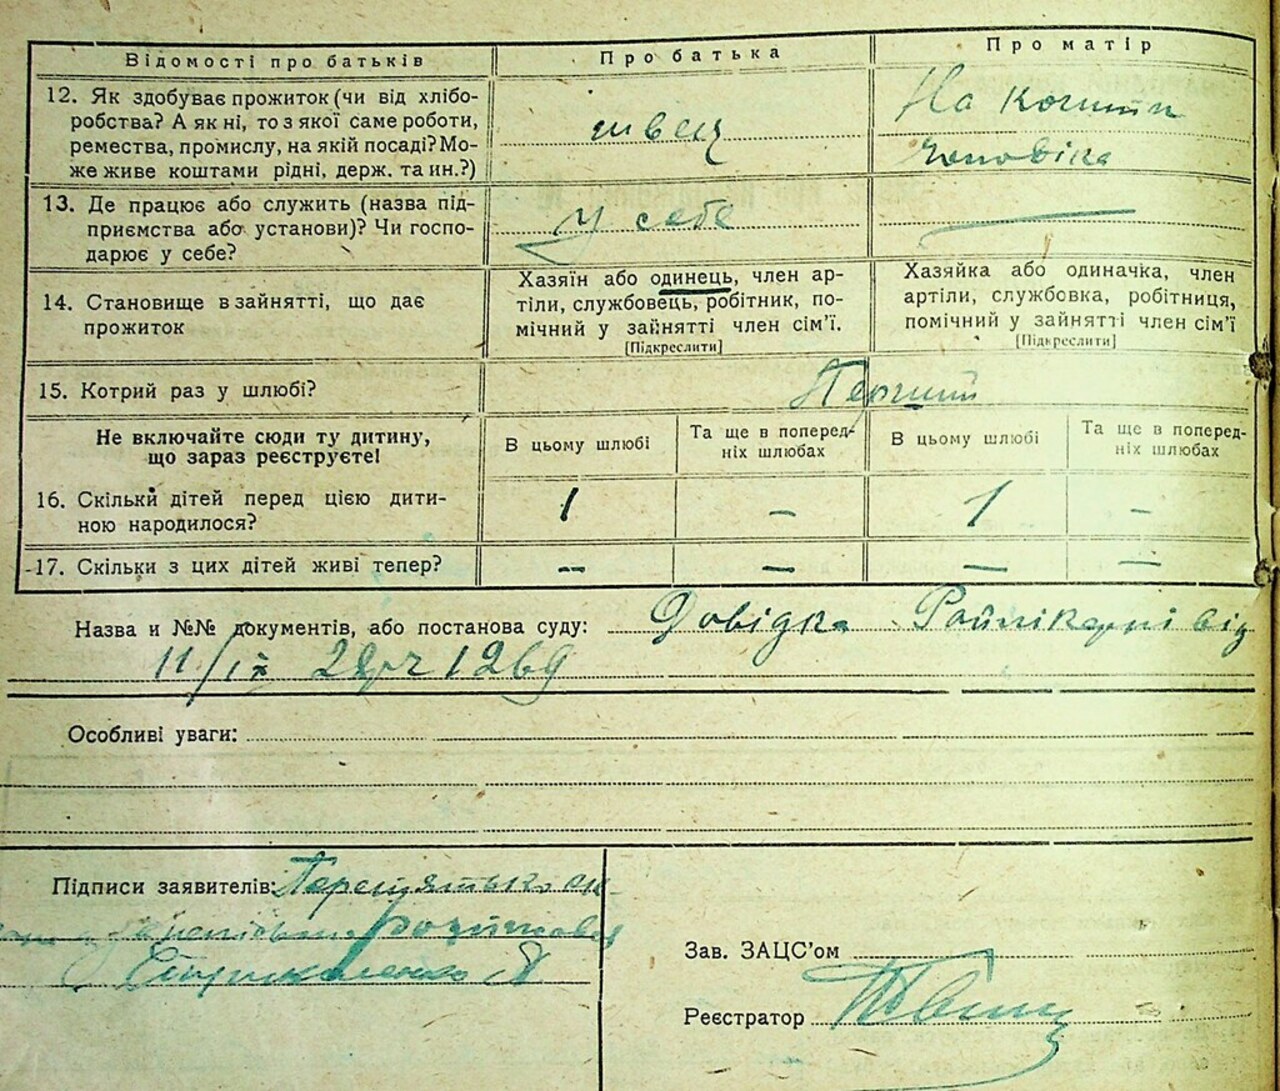 Відомості про батьків
Про батька
Про матір
12. Як здобуває прожиток (чи від хлібо-
робства? А як ні, то з якої саме роботи,
ремества, промислу, на якій посаді? Мо-
же живе коштами рідні, держ. та ин.?)
швець
На кошти
чоловіка
13. Де працює або служить (назва під-
приємства або установи)? Чи госпо-
дарює у себе?
у себе
14. Становище в зайнятті, що дає
прожиток
Хазяїн або одинець, член ар-
тіли, службовець, робітник, по-
мічний у зайнятті член сім’ї.
[Підкреслити]
Хазяйка або одиначка, член
артіли, службовка, робітниця,
помічний у зайнятті член сім’ї
[Підкреслити]
15. Котрий раз у шлюбі?
Перший
Не включайте сюди ту дитину,
що зараз реєструєте!
В цьому шлюбі
Та ще в поперед-
ніх шлюбах
В цьому шлюбі
Та ще в поперед-
ніх шлюбах
16. Скільки дітей перед цією дити-
ною народилося?
1
–
1
–
17. Скільки з цих дітей живі тепер?
–
–
–
–
Назва и №№ документів, або постанова суду: Довідка Райлікарні від
11/IX 28 р ч 1269
Особливі уваги:
Підписи заявителів:
Зав. ЗАЦС’ом
Реєстратор